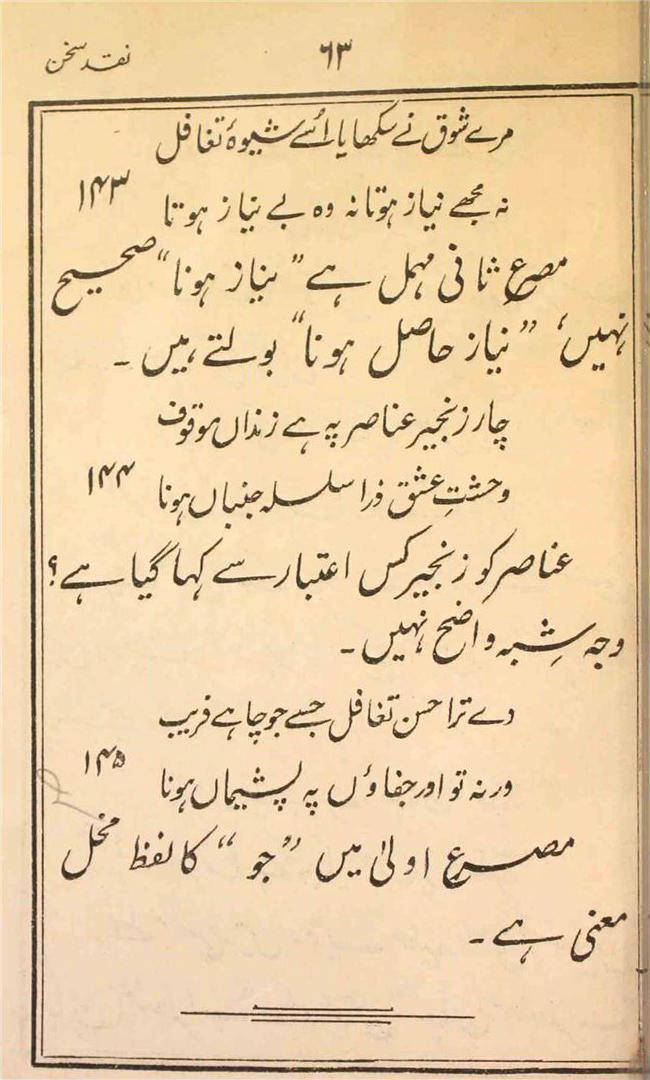 نقد سخن
۶۳
مرے شوق نے سکھایا اُسے شیوۂ تغافل
نہ مجھے نیاز ہوتا نہ وہ بے نیاز ہوتا ۱۴۳
مصرع ثانی مہمل ہے "نیاز ہونا" صحیح
نہیں، "نیاز حاصل ہونا" بولتے ہیں۔
چار زنجیر عناصر پہ ہے زنداں موقوف
وحشتِ عشق ذرا سلسلہ جنباں ہونا ۱۴۴
عناصر کو زنجیر کس اعتبار سے کہا گیا ہے؟
وجہ شبہ واضح نہیں۔
دے ترا حسن تغافل جسے جو چاہے فریب
ورنہ تو اور جفاؤں پہ پشیماں ہونا ۱۴۵
مصرع اولیٰ میں "جو" کا لفظ مخل
معنی ہے۔